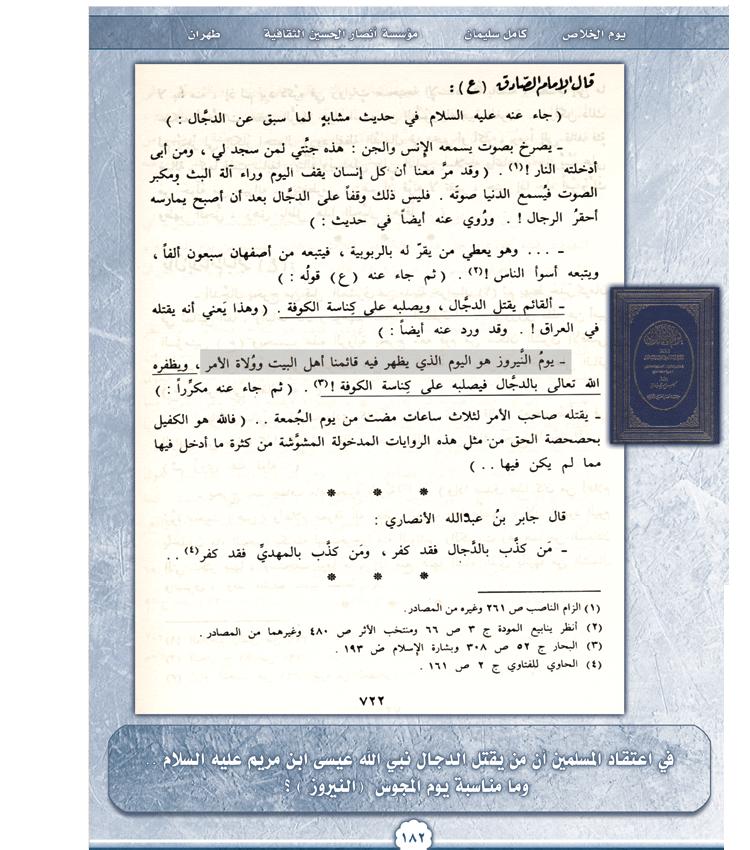 يوم الخلاص كامل سليمان مؤسسة أنصار الحسين الثقافية طهران
قال الإمام الصّادق (ع) :
( جاء عنه عليه السلام في حديث مشابهٍ لما سبق عن الدجَّال : )
ـ يصرخ بصوت يسمعه الإنس والجن : هذه جنَّتي لمن سجد لي ، ومن أبى
أدخلته النار !(١) . ( وقد مرَّ معنا أن كل إنسان يقف اليوم وراء آلة البث ومكبر
الصوت فيُسمع الدنيا صوتَه . فليس ذلك وقفاً على الدجَّال بعد أن أصبح يمارسه
أحقرُ الرجال ! . ورُوي عنه أيضاً في حديث : )
ـ ... وهو يعطي من يقرّ له بالربوبية ، فيتبعه من أصفهان سبعون ألفاً ،
ويتبعه أسوأ الناس !(٢) . ( ثم جاء عنه (ع) قولُه : )
ـ ألقائم يقتل الدجَّال ، ويصلبه على كِناسة الكوفة . ( وهذا يَعني أنه يقتله
في العراق ! . وقد ورد عنه أيضاً : )
ـ يومُ النَّيروز هو اليوم الذي يظهر فيه قائمنا أهل البيت ووُلاة الأمر ، ويظفره
الله تعالى بالدجَّال فيصلبه على كِناسة الكوفة !(٣) . ( ثم جاء عنه مكرِّراً : )
ـ يقتله صاحب الأمر لثلاث ساعات مضت من يوم الجُمعة .. ( فالله هو الكفيل
بحصحصة الحق من مثل هذه الروايات المدخولة المشوَّشة من كثرة ما أدخل فيها
مما لم يكن فيها .. )
* * *
قال جابر بنُ عبدالله الأنصاري :
ـ مَن كذَّب بالدَّجال فقد كفر ، ومَن كذَّب بالمهديِّ فقد كفر(٤) ..
* * *
(١) الزام الناصب ص ٢٦١ وغيره من المصادر.
(٢) أنظر ينابيع المودة ج ٣ ص ٦٦ ومنتخب الأثر ص ٤٨٠ وغيرهما من المصادر .
(٣) البحار ج ٥٢ ص ٣٠٨ وبشارة الإسلام ض ١٩٣ .
(٤) الحاوي للفتاوي ج ٢ ص ١٦١ .
٧٢٢
في اعتقاد المسلمين أن من يقتل الدجال نبي الله عيسى ابن مريم عليه السلام ..
وما مناسبة يوم المجوس (النيروز) ؟
١٨٢